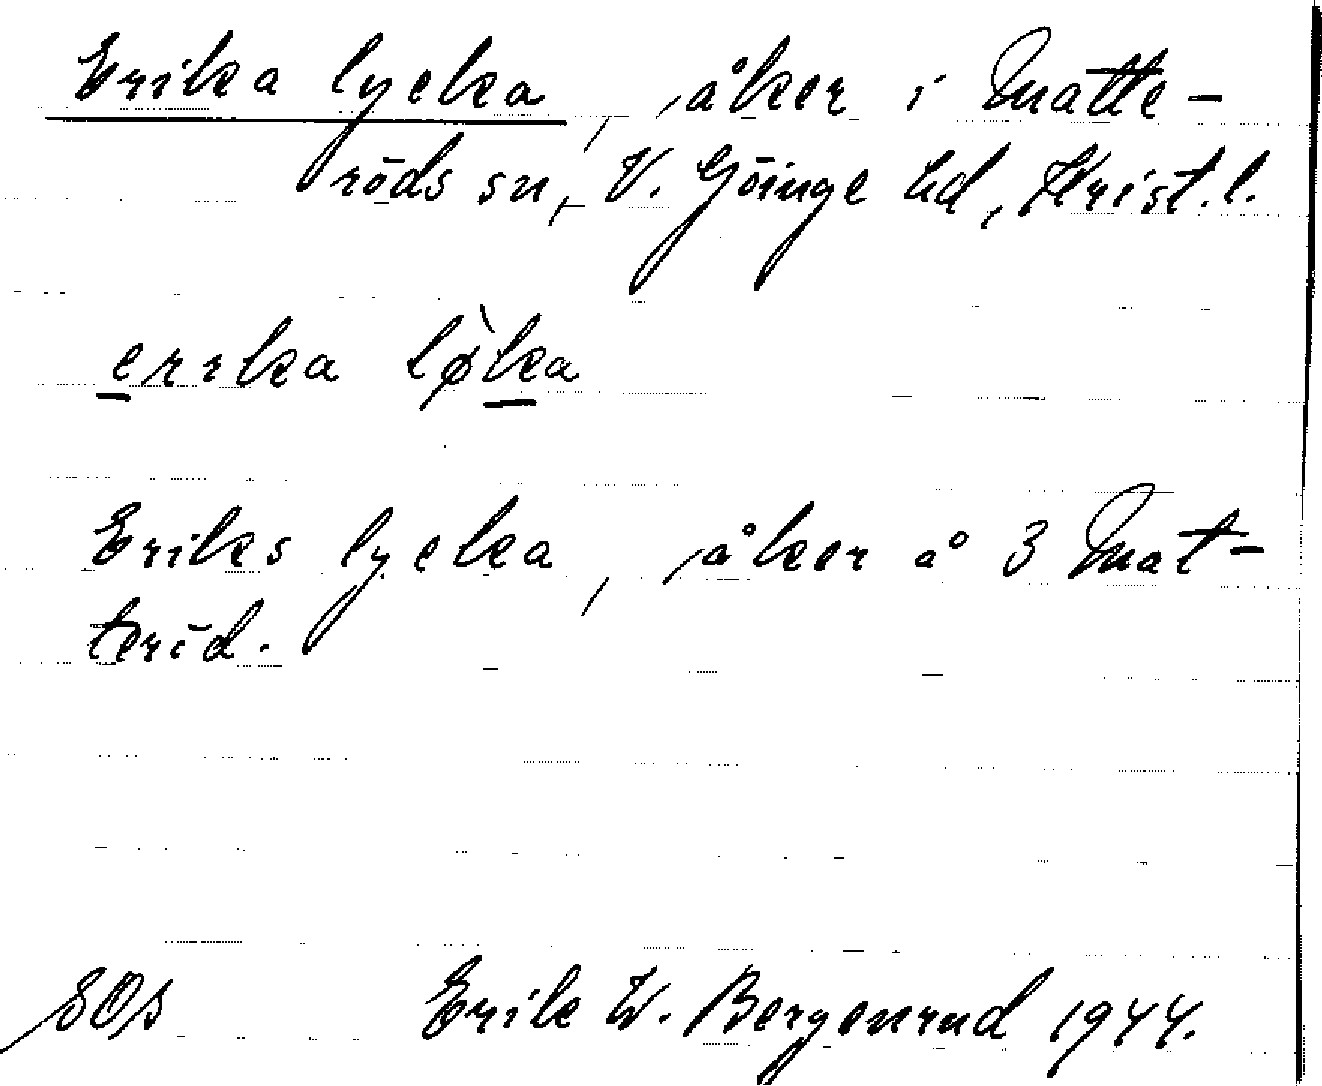 Erika lycka, åker i Matte-
röds sn, V. Göinge hd, Krist.l.
errka lø̀ka
Eriks lycka, åker å 3 Mat-
teröd.
SOs Erik W. Bergenrud 1944.